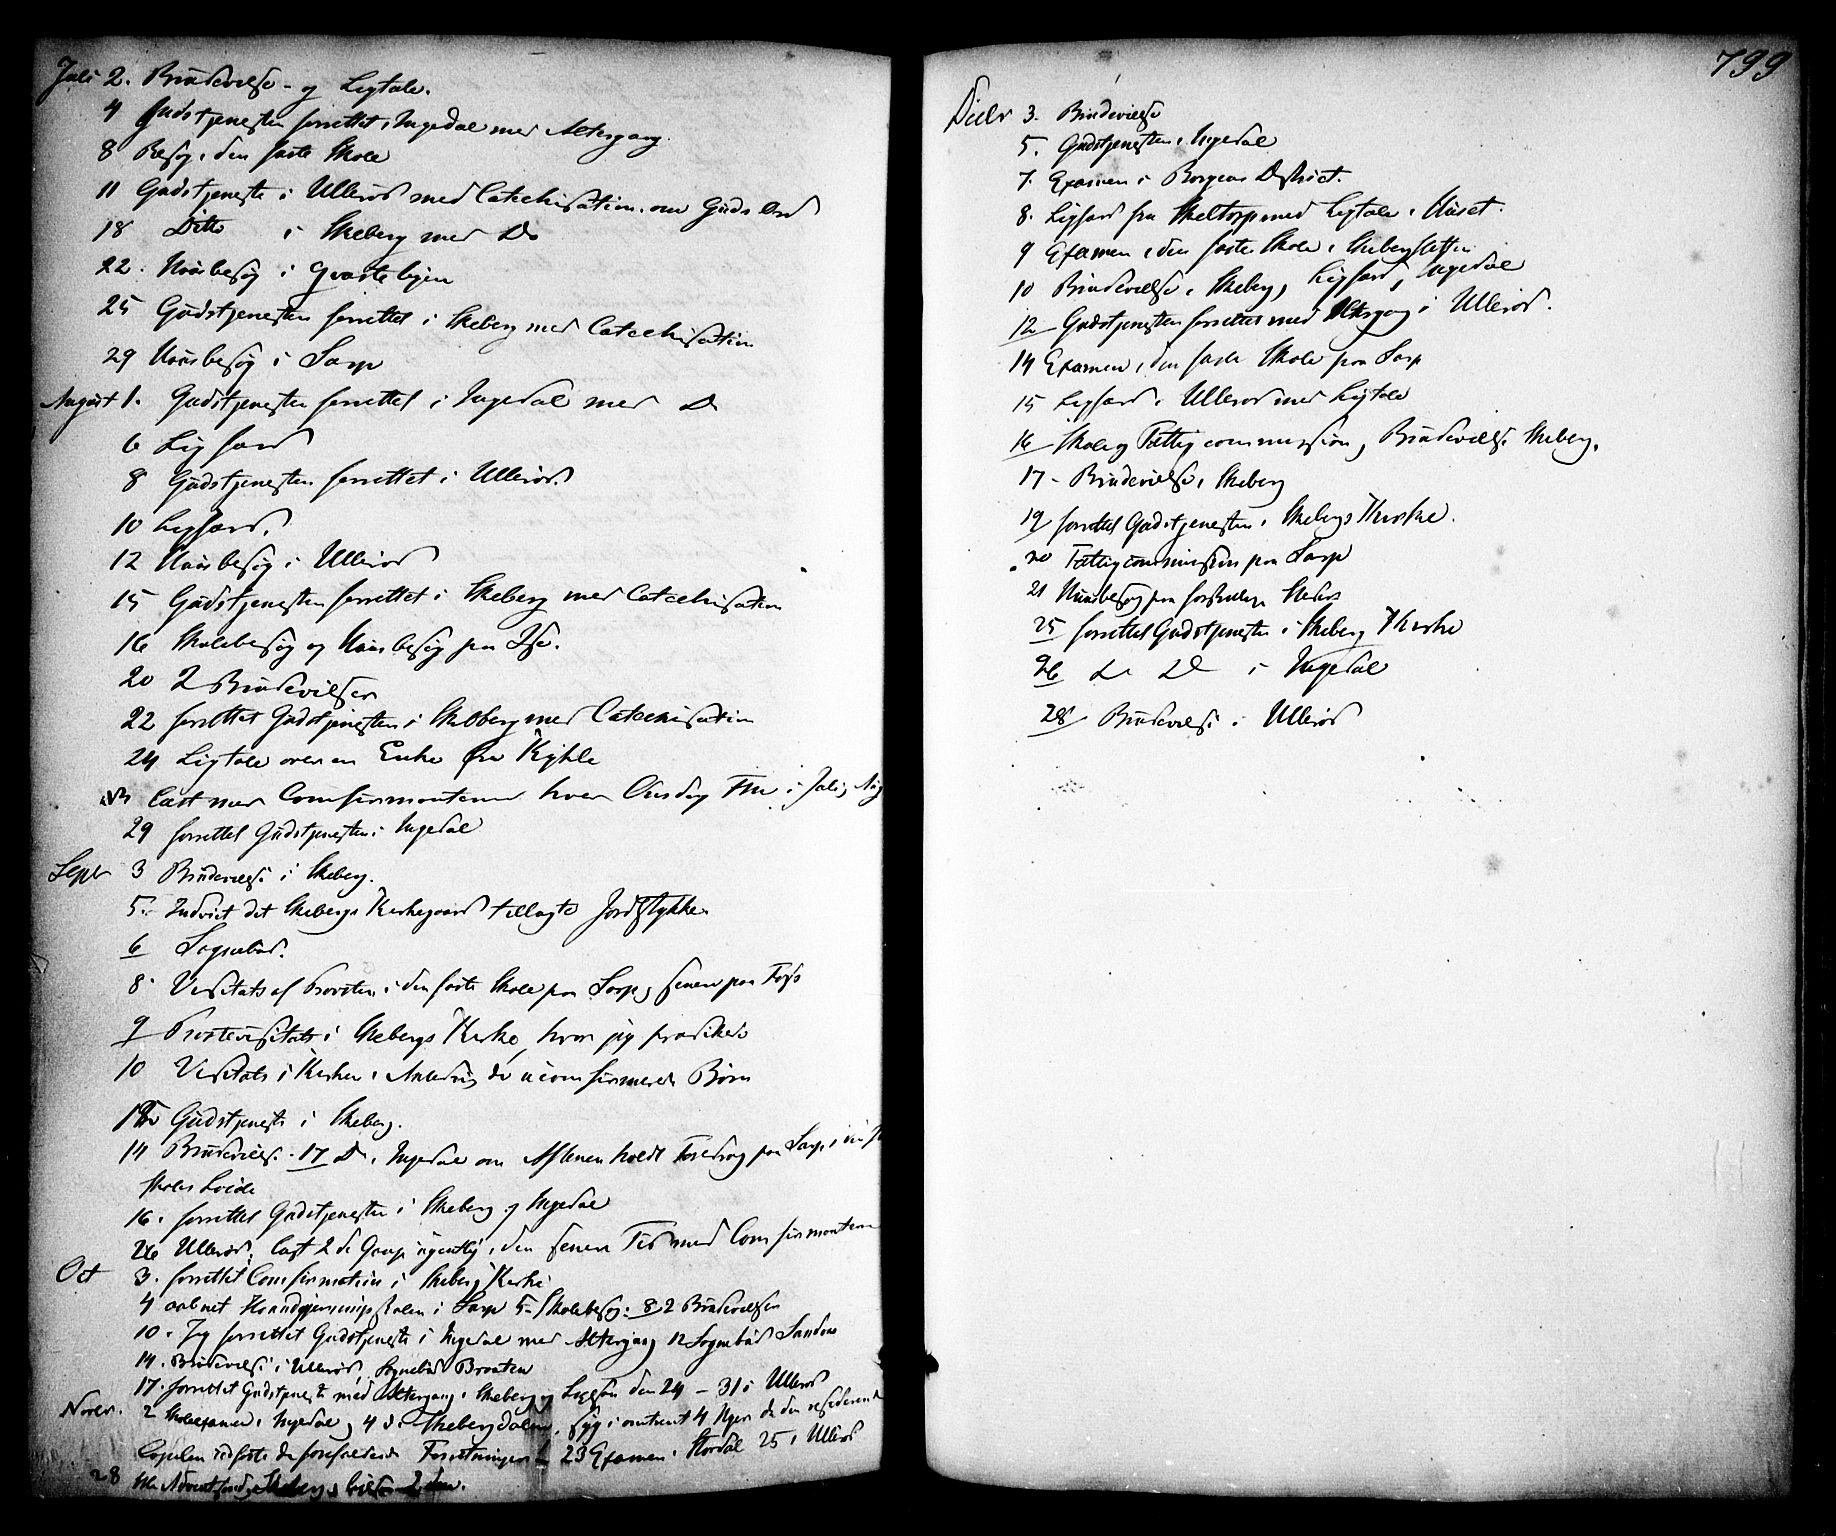 Juli 2. Brudevielse og Ligtale.
4 Gudstjenesten forrettet i Ingedal med Altergang.
8 Besøg i den faste Skole
11 Gudstjeneste i Ullerøe med Catechisation om Guds Ord
18 Ditto i Skeberg med Do
22. Huusbesøg i
25 Gudstjenesten forrettet i Skeberg med Catechisation
29 Huusbesøg i Sarp
August 1. Gudstjenesten forrettet i Ingedal med D
6 Ligfærd
8 Gudstjenesten forrettet i Ullerøe.
10 Ligfærd.
12 Huusbesøg i Ullerøe
15 Gudstjenesten forrettet i Skeberg med Catechisation
16 Skolebesøg og Huusbesøg paa Ise.
20 2 Brudevielser
22 forrettet Gudstjenesten i Skeberg med Catechisation
24 Ligtale over en Enke fra
læst med Confirmanterne hver Onsdag i Juli, Aug
29 forrettet Gudstjenesten i Ingedal
Septr 3 Brudevielse i Skeberg.
5. Indviet det Skebergs Kirkegaard tillagte Jordstykke.
6 Sognebud.
8 Visitats af Provsten i den faste Skole paa Sarp, senere paa
9 Provstevisitats i Skebergs Kirke, hvor jeg prædikede
10 Visitats i Kirken i Anledning de uconfirmerede Børn
12 Gudstjeneste i Skeberg.
14 Brudevielse. 17 D. i Ingedal om Aftenen holdt Foredrag paa Sarp i
Skoles Locale
16. forrettet Gudstjenesten i Skeberg og Ingedal
26 Ullerøe, læst 2 de Gange ugentlig i den senere Tid med Confirmanterne
Oct 3. forrettet Confirmation i Skeberg Kirke
4 aabnet Haandgjerningsskolen i Sarp 5. Skolebesøg. 8 2 Brudevielser
10. Jeg forrettet Gudstjeneste i Ingedal med Altergang 12 Sognebud
14. Brudevielse i Ullerøe, Sognebud Braaten
17. forrettet Gudstjeneste med Altergang i Skeberg og Ligesaa den 24 – 31 i Ullerøe
Novbr. 2 Skoleexamen i Ingedal, 4 d. i Skebergdalen, syg i omtrent 4 Uger da den residerende
Capelan udførte de forefaldende Forretninger – 23 Examen i Stordal 25 i Ullerøe
28
799
Decbr 3. Brudevielse
5. Gudstjenesten i Ingedal
7. Examen i Borgens District.
8. Ligfærd fra Skeltorp med Ligtale i Huset.
9 Examen i den faste Skole i Skebergsletten
10 Brudevielse i Skeberg, Ligfærd, Ingedal
12 Gudstjenesten forrettet med Altergang i Ullerøe.
14 Examen i den faste Skole paa Sarp
15 Ligfærd i Ullerøe med Ligtale
16 Skole og Fattigcommission, Brudevielse Skeberg.
17. Brudevielse i Skeberg
19 forrettet Gudstjenesten i Skebergs Kirke.
20 Fattigcommission paa Sarp
21 Huusbesøg paa
25 forrettet Gudstjenesten i Skeberg Kirke
26 D D i Ingedal
28 Brudevielse i Ullerøe